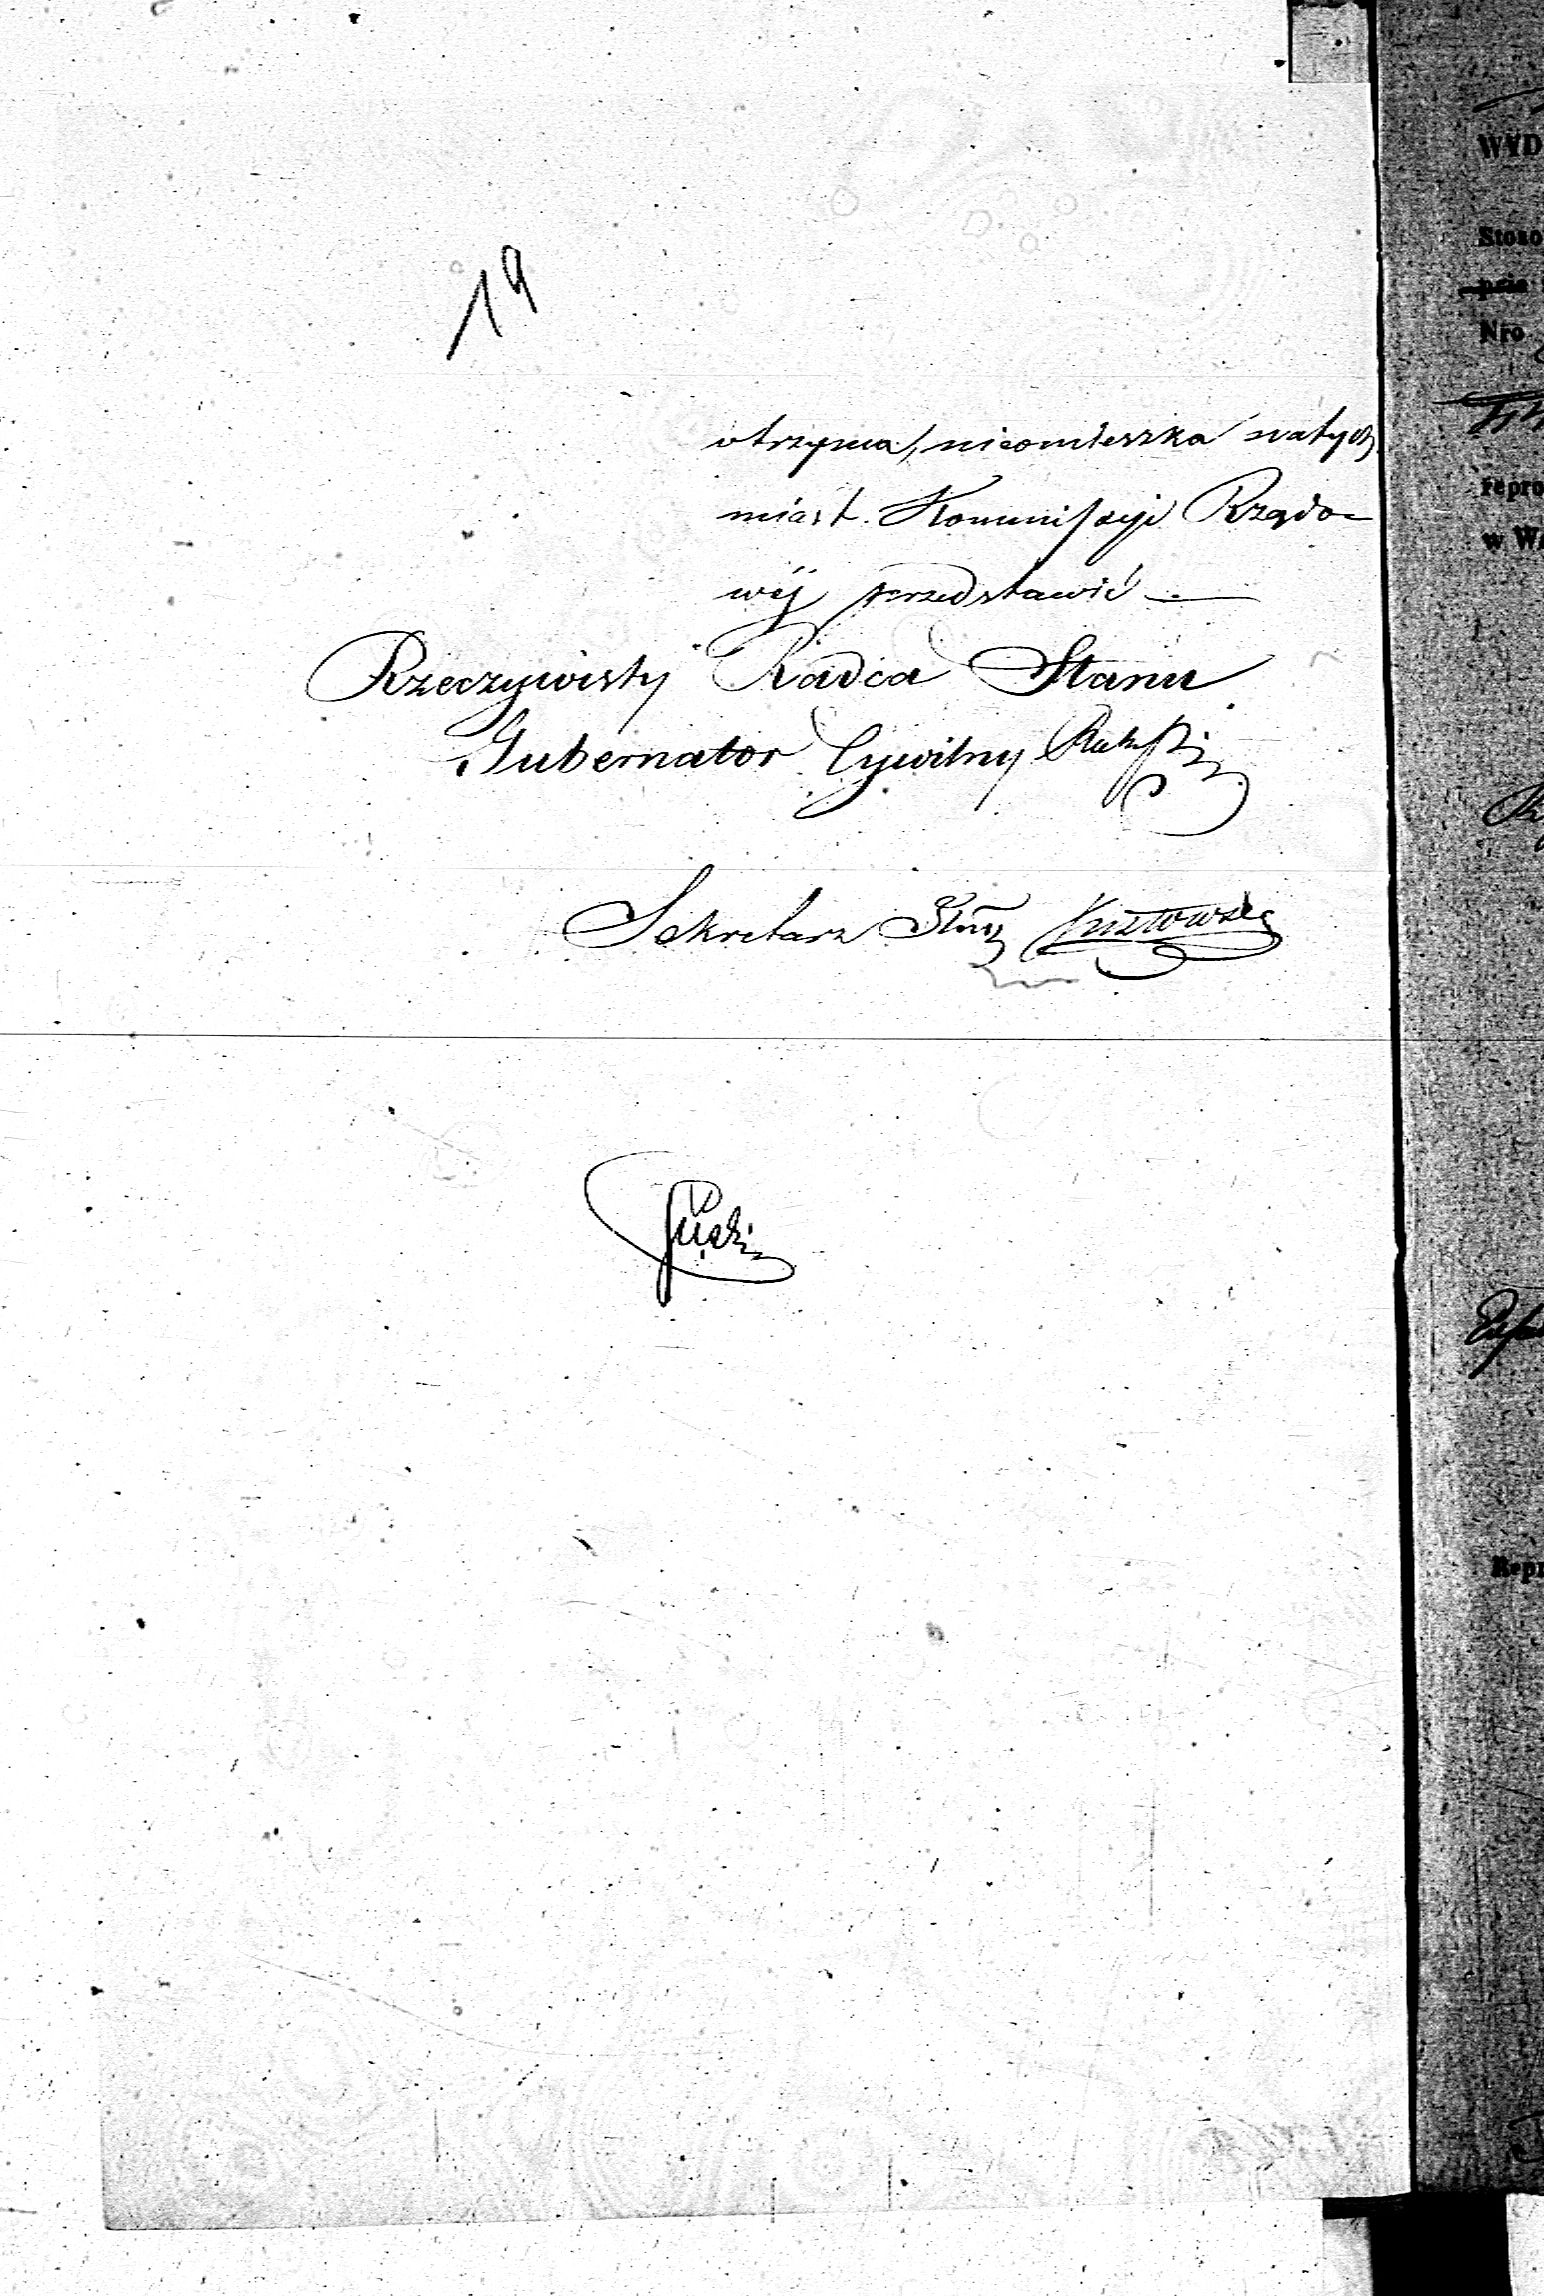 19
otrzyma, nieomieszka natych
miast Kommissyi Rządo-
wéj przedstawić
Rzeczywisty Radca Stanu
Gubernator Cywilny
Sekretarz
WYD
Stoso
pnia
Nro
repro
w Wa
Repr